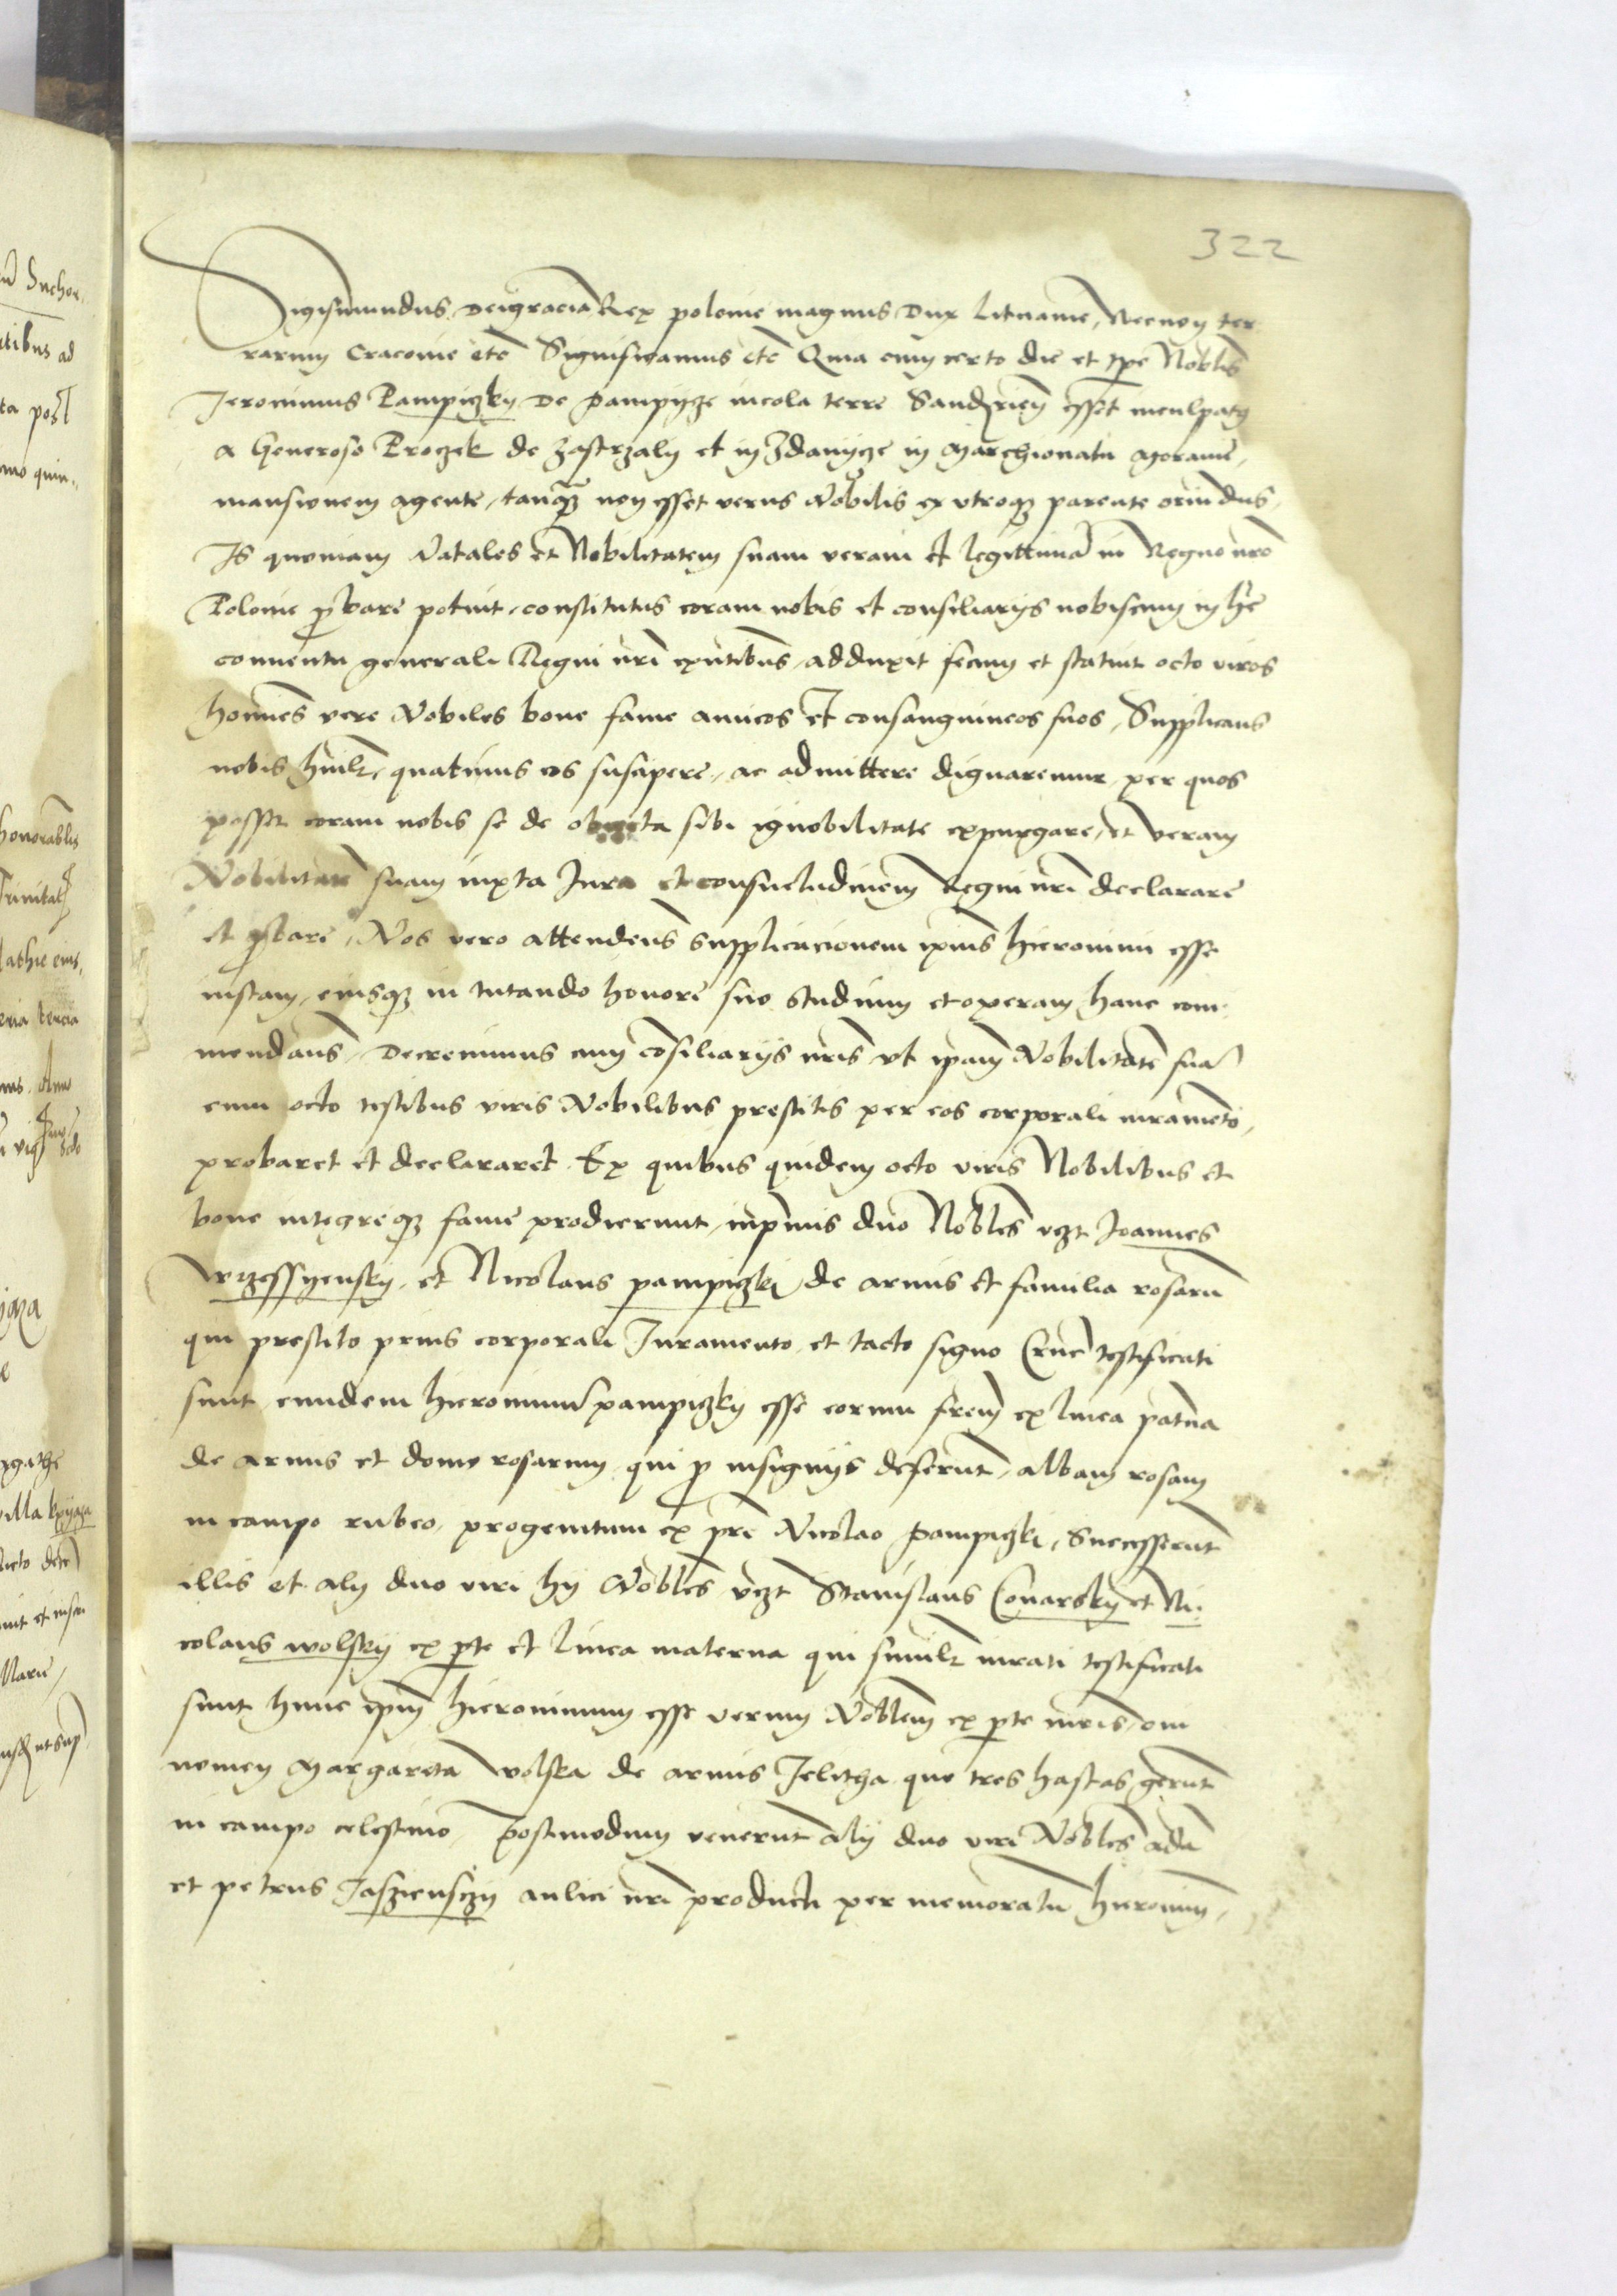 322
Sigismundus deigracia Rex polonie magnus Dux Lituanie, Necnon ter
rarum Cracovie etc Significamus etc Quia cum certo die et tpe Noblis
Jeronimus Pampiczky de Pampycze incola terre Sandrien esset inculpatus
a Generoso Proczek de Zastrzaly et in Zdanycze in Marchionatu Moravie,
mansionem agente, tanquam non esset verus Nobilis ex utroque parente oriundus,
Is quoniam Natales et Nobilitatem suam veram et legittima in Regno nro
Polonie probare potuit, constitutus coram nobis et consiliariis nobiscum in hoc
conventu generali Regni nri existentibus, adduxit secum et statuit octo viros
homines vere Nobiles bone fame amicos et consanguineos suos, Supplicans
nobis humiliter, quatinus eos suscipere, ac admittere dignaremur per quos
posset coram nobis se de obiecta sibi ignobilitate expurgare, et veram
Nobilitatem suam iuxta Jura et consuetudinem Regni nri declarare
et probare, Nos vero attendens supplicacionem ipius hieronimi esse
iustam, eiusque in tutando honore suo studium et operam hanc com
mendans, Decrevimus cum cosiliariis nris ut ipam Nobilitate sua
cum octo testibus viris Nobilibus prestitis per eos corporali iurameto,
probaret et declararet. Ex quibus quidem octo viris Nobilibus et
bone integreque fame prodierunt, inprimis duo Nobles vczt Joannes
Wrzessyensky, et Nicolaus pampiczki de armis et familia rosaru
qui prestito prius corporali Juramento et tacto signo Cruc testificati
sunt eundem hieronimu pampiczky esse eorum frem ex linea paterna
de armis et domo rosarum qui pro insigniis deferut, albam rosam
in campo rubeo, progenitum ex pre Nicolao Pampiczki, Successerut
illis et alii duo viri hii Nobles vczt Stanislaus Conarsky et Ni
colaus wolsky ex parte et linea materna qui similiter iurati testificati
sunt hunc ipum hieronimum esse verum Noblem ex parte mris, cui
nomen Margareta wolska de armis Jelitha que tres hastas gerut
in campo celestino, Postmodum venerut alii duo viri Nobles ada
et petrus Jasziensczy aulici nri producti per memoratu hieronim,